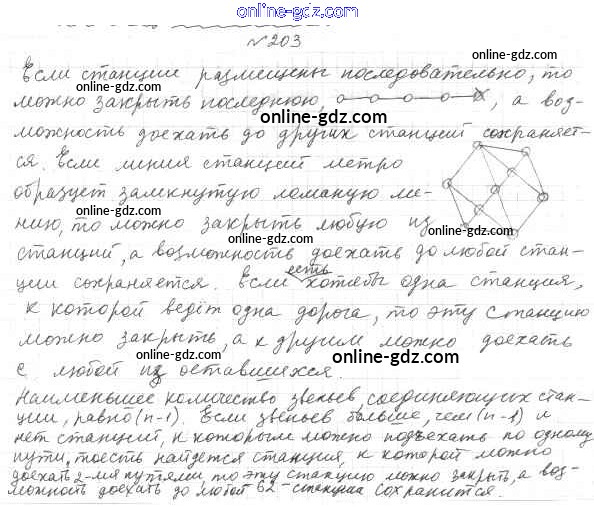 online-gdz.com
№203
Если станции размещены последовательно, то
online-gdz.com
можно закрыть последнюю, а воз-
online-gdz.com
можность доехать до других станций сохраняет-
ся. Если линия станций метро
online-gdz.com
образует замкнутую ломаную ли-
online-gdz.com
нию, то можно закрыть любую из
online-gdz.com
станций, а возможность доехать до любой стан-
ции сохраняется. Если есть хотябы одна станция,
online-gdz.com
к которой ведёт одна дорога, то эту станцию
можно закрыть, а к другим можно доехать
online-gdz.com
online-gdz.com
с любой из оставшихся.
Наименьшее количество звеньев, соединяющих стан-
ции, равно (n-1). Если звеньев больше, чем (n-1) и
online-gdz.com
нет станций, к которым можно подъехать по одному
пути, тоесть найдется станция, к которой можно
доехать 2-мя путями, то эту станцию можно закрыть, а воз-
online-gdz.com
можность доехать до любой станции сохранится.